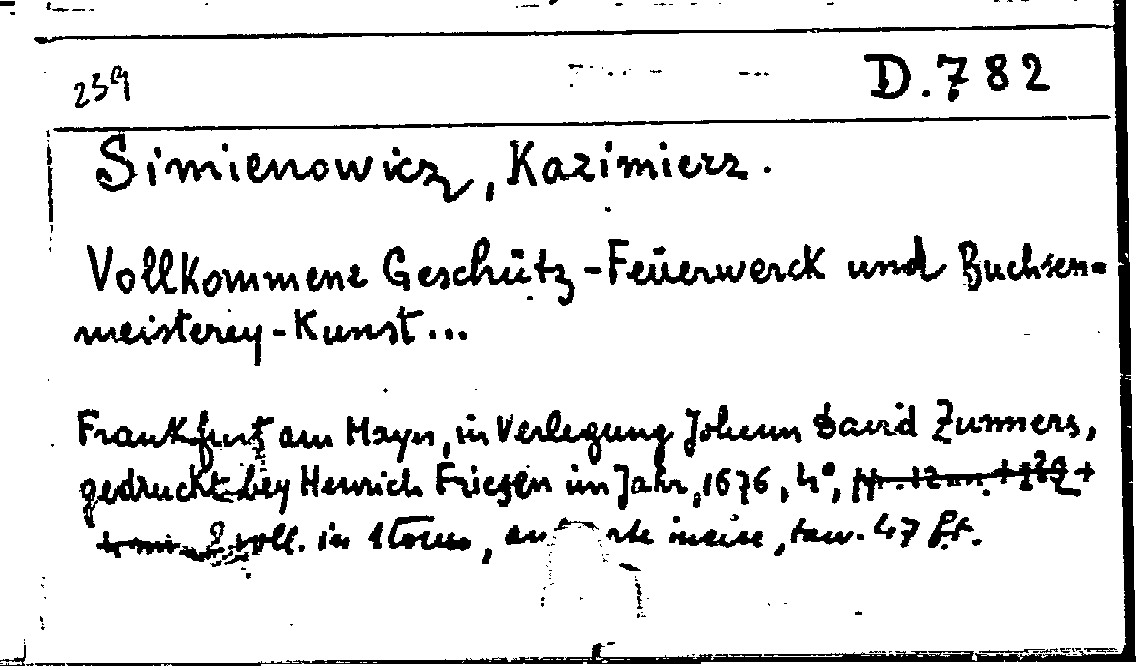 239 D.782
Simienowicz, Kazimierz.
Vollkommene Geschütz-Feüerwerck und Buchsen-
meisterey-Kunst...
Frankfurt am Mayn, in Verlegung Johann David Zunners,
gedruckt bey Henrich Friesen im Jahr, 1676, 4°,
2 voll. in 1 tomo, tav. 47 ft.